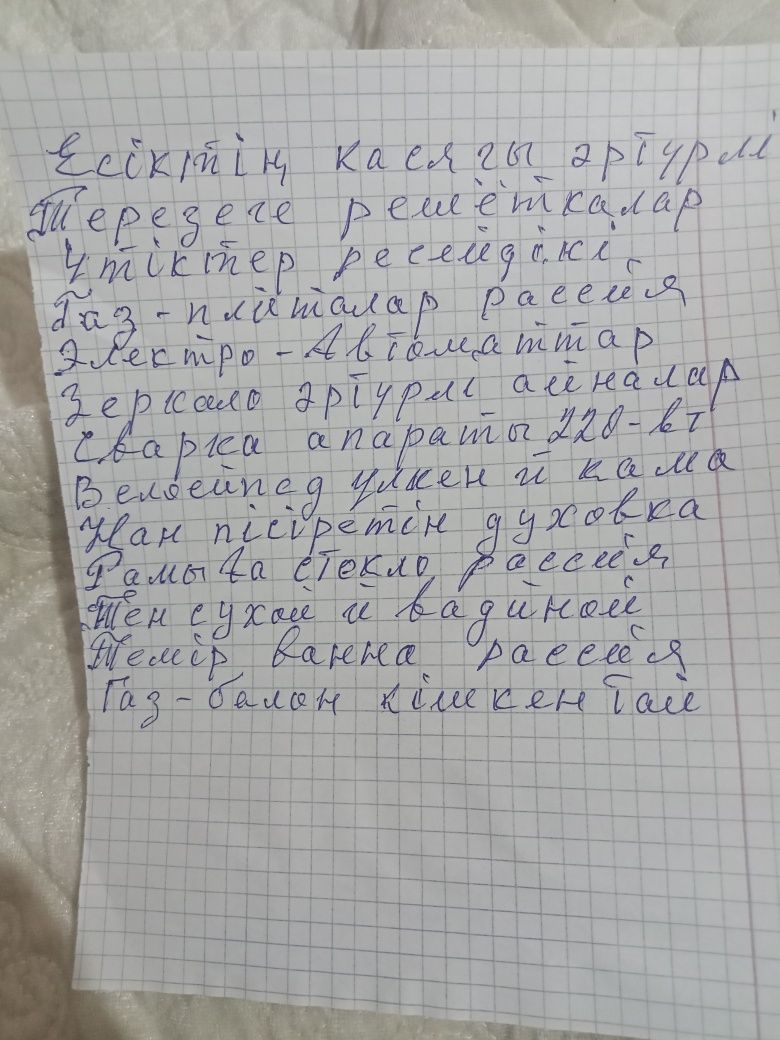 Есіктің касягы әртүрлі
Терезеге решёткалар
Үтіктер ресейдікі
Газ-плиталар рассия
Электро-Автоматтар
Зеркало әртүрлі айналар
Сварка апараты 220-вт
Велосипед үлкен й кама
Нан пісіретін духовка
Рамыва стекло рассия
Тен сухой й вадйной
Темір ванна рассия
Газ-балон кішкентай